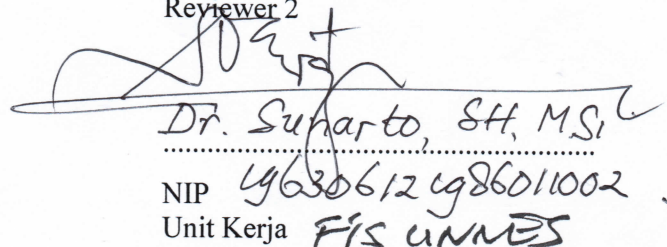 Reviewer 2
Dr. Sunarto, SH, M.Si
NIP 19630612 198601 1002
Unit Kerja FIS UNNES